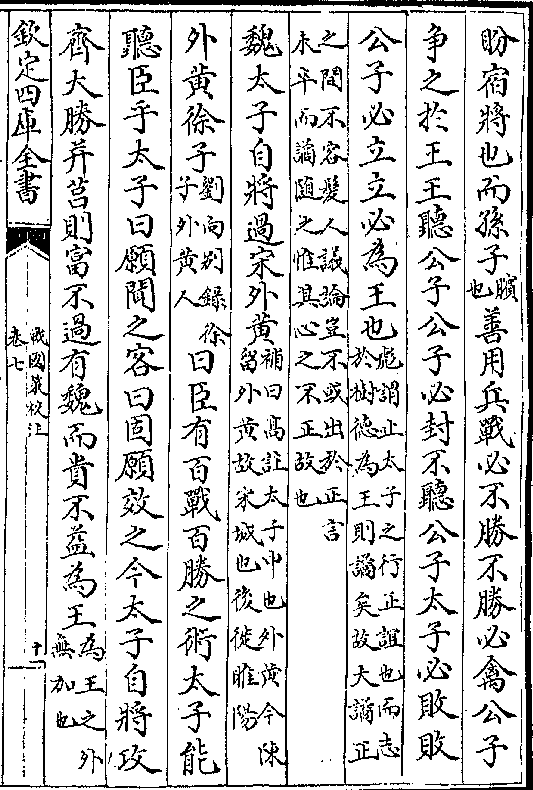 盼宿將也而孫子臏也善用兵戰必不勝不勝必禽公子
争之於王王聽公子公子必封不聽公子太子必敗敗
公子必立立必為王也彪謂止太子之行正誼也而志於樹德為王則譎矣故大譎正
之間不容髮人議論豈不或出於正言未卒而譎隨之惟其心之不正故也
魏太子自將過宋外黄補曰髙註太子申也外黄今陳留外黄故宋城也後徙睢陽
外黄徐子劉向别録徐子外黄人曰臣有百戰百勝之術太子能
聽臣乎太子曰願聞之客曰固願效之今太子自將攻
齊大勝并莒則富不過有魏而貴不益為王為王之外無加也
欽定四庫全書
戰國策校注
卷七
十